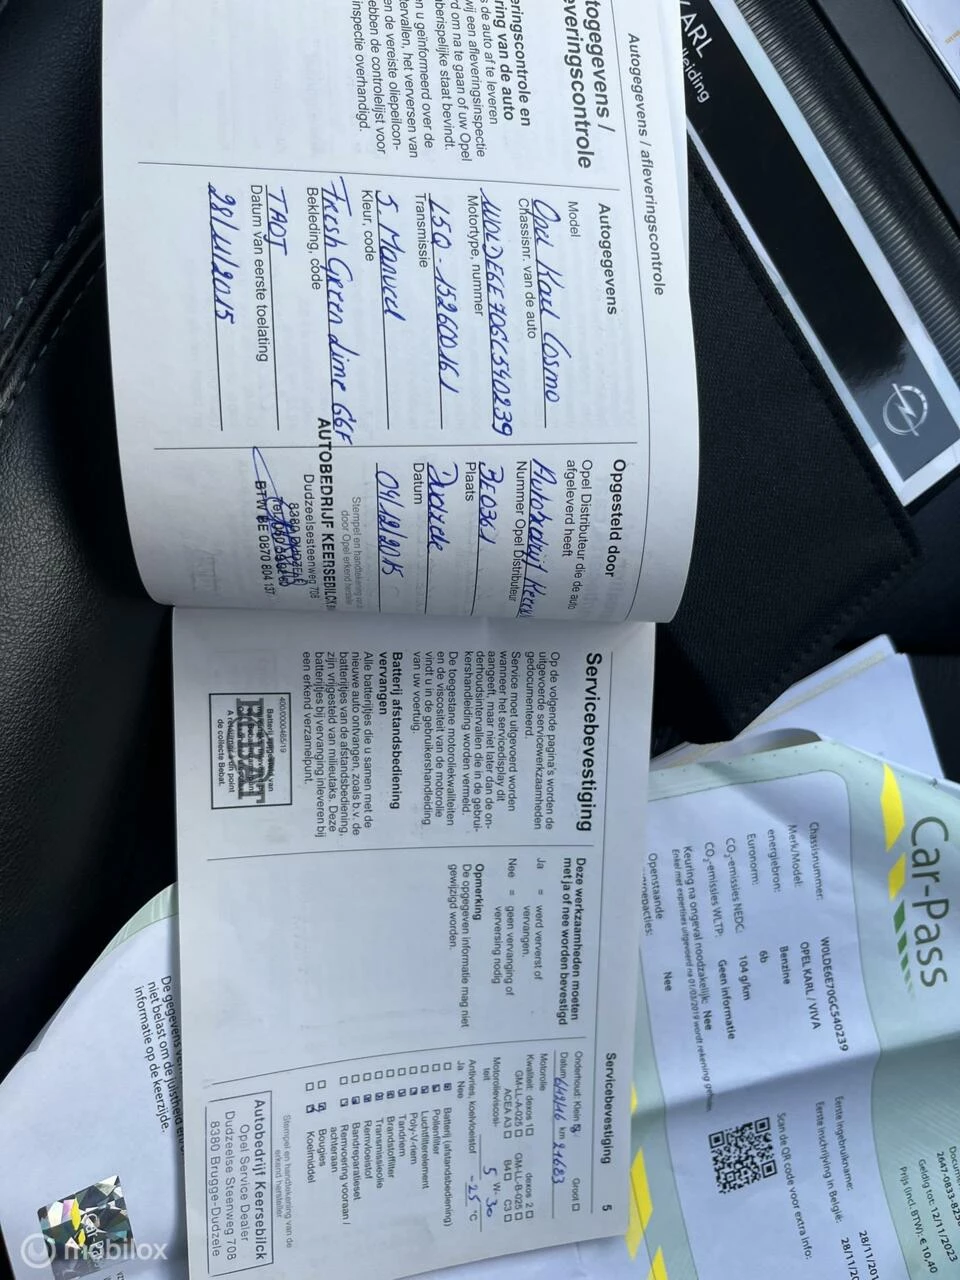 KARL
Autogegevens / afleveringscontrole
Autogegevens
Model
Opel Karl Cosmo
Chassisnr. van de auto
W0LDE6E70GC540239
Motortype, nummer
L5Q-152600161
Transmissie
5. Manueel
Kleur, code
Fresh Green Lime G6F
Bekleding, code
TAOJ
Datum van eerste toelating
28/11/2015
Opgesteld door
Opel Distributeur die de auto
afgeleverd heeft
Autobedrijf
Nummer Opel Distributeur
BE0361
Plaats
Dudzele
Datum
04/12/2015
Stempel en handtekening van
door Opel erkend hersteller
AUTOBEDRIJF KEERSEBILCK
Dudzeelsesteenweg 708
8380 DUDZELE
BTW BE 0870 804 137
Servicebevestiging
Op de volgende pagina's worden de
uitgevoerde servicewerkzaamheden
gedocumenteerd.
Service moet uitgevoerd worden
wanneer het servicedisplay dit
aangeeft, maar niet later dan de on-
derhoudsintervallen die in de gebrui-
kershandleiding worden vermeld.
De toegestane motoroliekwaliteiten
en de viscositeit van de motorolie
vindt u in de gebruikershandleiding
van uw voertuig.
Batterij afstandsbediening
vervangen
Alle batterijtjes die u samen met de
nieuwe auto ontvangen, zoals b.v. de
batterijtjes van de afstandsbediening,
zijn vrijgesteld van milieutaks. Deze
batterijtjes bij vervanging inleveren bij
een erkend verzamelpunt.
400/0000465/19
BEBAT
de collecte Bebat.
Deze werkzaamheden moeten
met ja of nee worden bevestigd
Ja = werd ververst of
vervangen.
Nee = geen vervanging of
verversing nodig
Opmerking
De opgegeven informatie mag niet
gewijzigd worden.
Servicebevestiging 5
Onderhoud: Klein Groot
Datum 6/12/16 km 21683
Motorolie
Kwaliteit: dexos 1 dexos 2
GM-LL-A-025 GM-LL-B-025
ACEA A3 B4 C3
Motorolieviscosi-
teit 5 W- 30
Antivries, koelvloeistof -25 °C
Ja Nee
Batterij (afstandsbediening)
Pollenfilter
Luchtfilterelement
Poly-V-riem
Tandriem
Brandstoffilter
Transmissieolie
Remvloeistof
Bandreparatieset
Remvoering vooraan /
achteraan
Bougies
Koelmiddel
Stempel en handtekening van de
erkend hersteller
Autobedrijf Keersebilck
Opel Service Dealer
Dudzeelse Steenweg 708
8380 Brugge-Dudzele
Car-Pass
Chassisnummer: W0LDE6E70GC540239
Merk/Model: OPEL KARL / VIVA
energiebron: Benzine
Euronorm: 6b
CO₂-emissies NEDC: 104 g/km
CO₂-emissies WLTP: Geen informatie
Keuring na ongeval noodzakelijk: Nee
Enkel met expertises uitgevoerd na 01/03/2019 wordt rekening gehouden
Openstaande
Nee
Eerste ingebruikname:
Eerste inschrijving in België:
Scan de QR code voor extra info:
Geldig tot: 12/11/2023
Prijs (incl. BTW): € 10,40
De gegevens
niet belast om de juistheid
informatie op de keerzijde.
mobilox